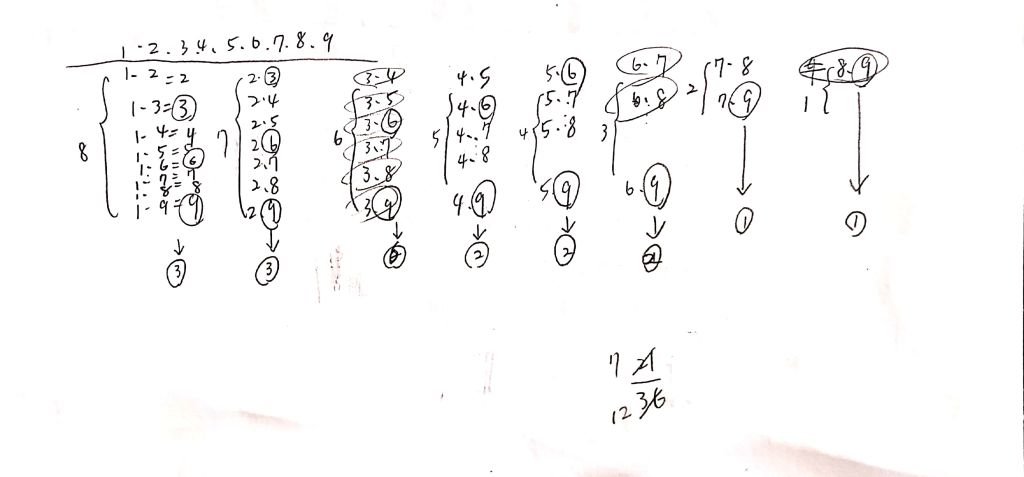 1 - 2 . 3 . 4 . 5 . 6 . 7 . 8 . 9
8
1 - 2 = 2
1 - 3 = 3
1 - 4 = 4
1 - 5 = 5
1 - 6 = 6
1 - 7 = 7
1 - 8 = 8
1 - 9 = 9
3
7
2 . 3
2 . 4
2 . 5
2 6
2 . 7
2 . 8
2 9
3
6
3 - 4
3 . 5
3 . 6
3 . 7
3 . 8
3 . 9
5
4 . 5
4 . 6
4 . 7
4 . 8
4 . 9
2
4
5 . 6
5 . 7
5 . 8
5 9
2
3
6 . 7
6 . 8
6 . 9
2
7 - 8
7 . 9
1
1
8 . 9
1
7 21
12 36